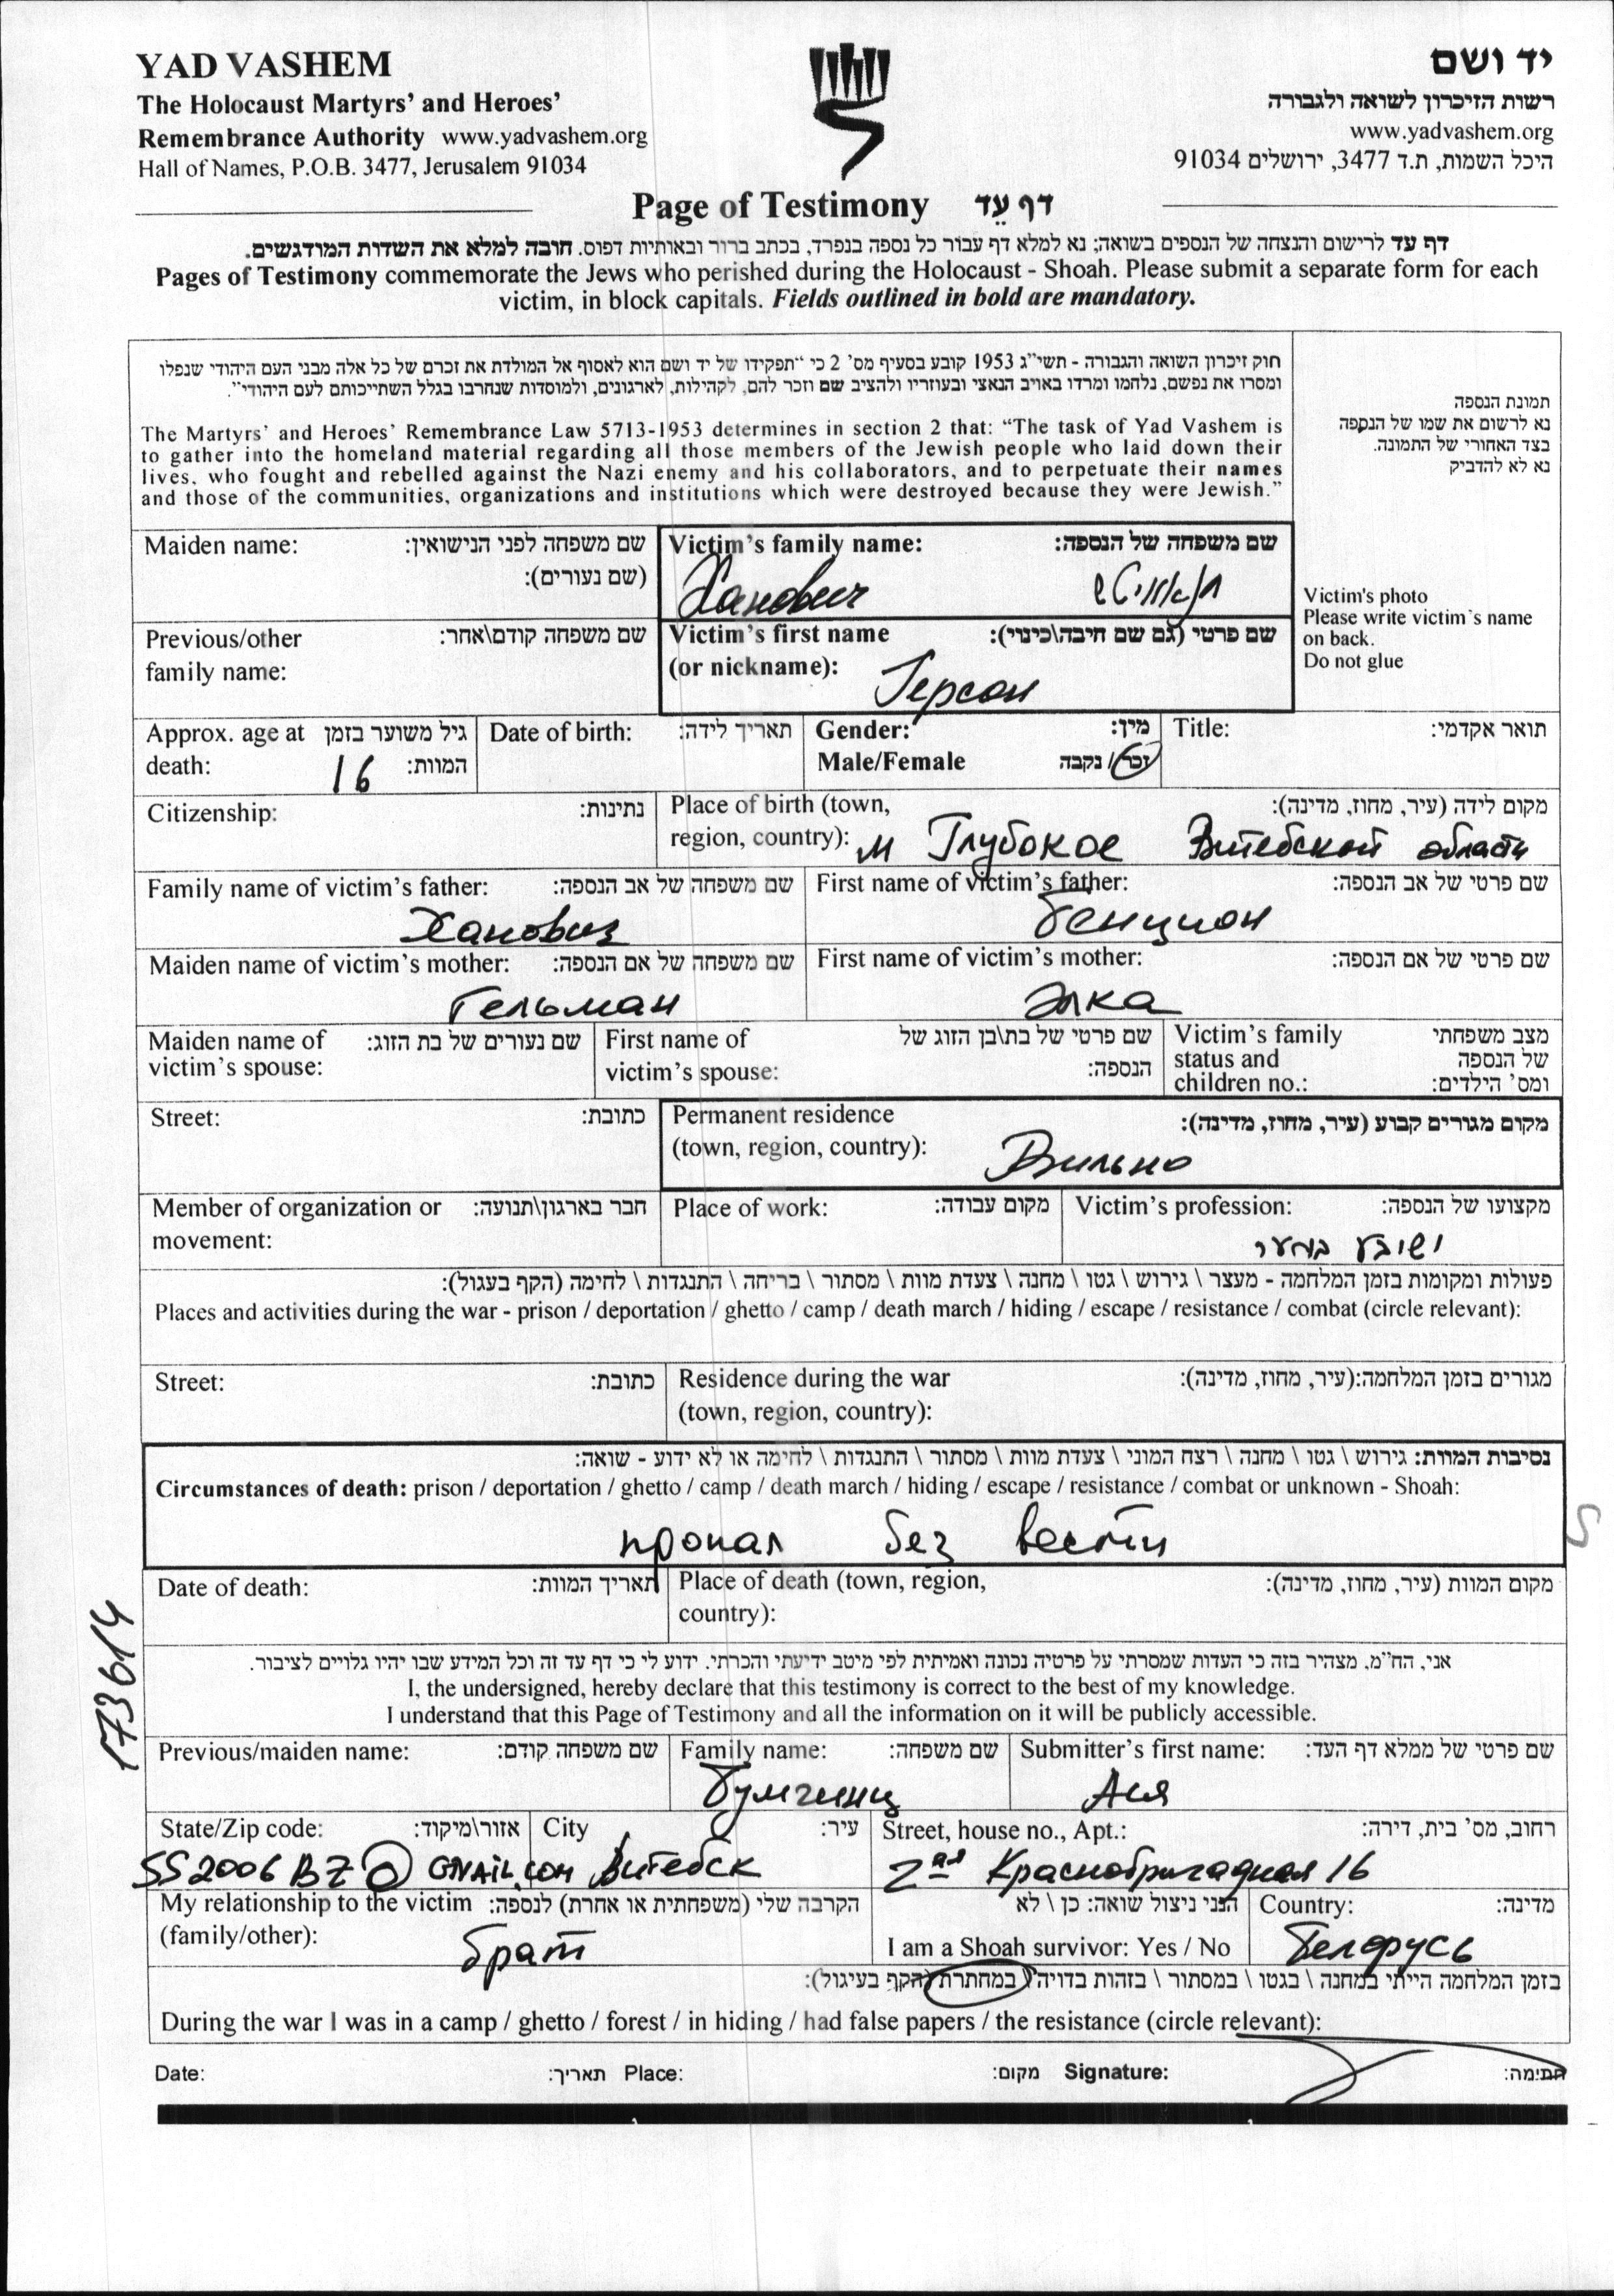 YAD VASHEM
The Holocaust Martyrs' and Heroes'
Remembrance Authority www.yadvashem.org
Hall of Names, P.O.B. 3477, Jerusalem 91034
יד ושם
רשות הזיכרון לשואה ולגבורה
www.yadvashem.org
היכל השמות, ת.ד 3477, ירושלים 91034
Page of Testimony דף עֵד
דף עד לרישום והנצחה של הנספים בשואה; נא למלא דף עבור כל נספה בנפרד, בכתב ברור ובאותיות דפוס. חובה למלא את השדות המודגשים.
Pages of Testimony commemorate the Jews who perished during the Holocaust - Shoah. Please submit a separate form for each
victim, in block capitals. Fields outlined in bold are mandatory.
חוק זיכרון השואה והגבורה - תשי"ג 1953 קובע בסעיף מס' 2 כי "תפקידו של יד ושם הוא לאסוף אל המולדת את זכרם של כל אלה מבני העם היהודי שנפלו
ומסרו את נפשם, נלחמו ומרדו באויב הנאצי ובעוזריו ולהציב שם וזכר להם, לקהילות, לארגונים, ולמוסדות שנחרבו בגלל השתייכותם לעם היהודי".
The Martyrs' and Heroes' Remembrance Law 5713-1953 determines in section 2 that: "The task of Yad Vashem is
to gather into the homeland material regarding all those members of the Jewish people who laid down their
lives, who fought and rebelled against the Nazi enemy and his collaborators, and to perpetuate their names
and those of the communities, organizations and institutions which were destroyed because they were Jewish."
תמונת הנספה
נא לרשום את שמו של הנספה
בצד האחורי של התמונה.
נא לא להדביק
Victim's photo
Please write victim's name
on back.
Do not glue
Maiden name: שם משפחה לפני הנישואין:
(שם נעורים):
Victim's family name: שם משפחה של הנספה:
Ханович
Previous/other שם משפחה קודם\אחר:
family name:
Victim's first name שם פרטי (גם שם חיבה\כינוי):
(or nickname):
Герсон
Approx. age at גיל משוער בזמן
death: המוות:
16
Date of birth: תאריך לידה:
Gender: מין:
Male/Female זכר / נקבה
Title: תואר אקדמי:
Citizenship: נתינות:
Place of birth (town, מקום לידה (עיר, מחוז, מדינה):
region, country): м Глубокое Витебской области
Family name of victim's father: שם משפחה של אב הנספה:
Ханович
First name of victim's father: שם פרטי של אב הנספה:
Бенцион
Maiden name of victim's mother: שם משפחה של אם הנספה:
Гельман
First name of victim's mother: שם פרטי של אם הנספה:
Элка
Maiden name of שם נעורים של בת הזוג:
victim's spouse:
First name of שם פרטי של בת\בן הזוג של
victim's spouse: הנספה:
Victim's family מצב משפחתי
status and של הנספה
children no.: ומס' הילדים:
Street: כתובת:
Permanent residence מקום מגורים קבוע (עיר, מחוז, מדינה):
(town, region, country):
Вильно
Member of organization or חבר בארגון\תנועה:
movement:
Place of work: מקום עבודה:
Victim's profession: מקצועו של הנספה:
פעולות ומקומות בזמן המלחמה - מעצר \ גירוש \ גטו \ מחנה \ צעדת מוות \ מסתור \ בריחה \ התנגדות \ לחימה (הקף בעגול):
Places and activities during the war - prison / deportation / ghetto / camp / death march / hiding / escape / resistance / combat (circle relevant):
Street: כתובת:
Residence during the war מגורים בזמן המלחמה:(עיר, מחוז, מדינה):
(town, region, country):
נסיבות המוות: גירוש \ גטו \ מחנה \ רצח המוני \ צעדת מוות \ מסתור \ התנגדות \ לחימה או לא ידוע - שואה:
Circumstances of death: prison / deportation / ghetto / camp / death march / hiding / escape / resistance / combat or unknown - Shoah:
пропал без вести
Date of death: תאריך המוות:
Place of death (town, region, מקום המוות (עיר, מחוז, מדינה):
country):
173614
אני, הח"מ, מצהיר בזה כי העדות שמסרתי על פרטיה נכונה ואמיתית לפי מיטב ידיעתי והכרתי. ידוע לי כי דף עד זה וכל המידע שבו יהיו גלויים לציבור.
I, the undersigned, hereby declare that this testimony is correct to the best of my knowledge.
I understand that this Page of Testimony and all the information on it will be publicly accessible.
Previous/maiden name: שם משפחה קודם:
Family name: שם משפחה:
Submitter's first name: שם פרטי של ממלא דף העד:
Ася
State/Zip code: אזור\מיקוד:
SS2006BZ@GMAIL.COM
City עיר:
Витебск
Street, house no., Apt.: רחוב, מס' בית, דירה:
2ая Краснобригадная 16
My relationship to the victim הקרבה שלי (משפחתית או אחרת) לנספה:
(family/other):
брат
הנני ניצול שואה: כן \ לא
I am a Shoah survivor: Yes / No
Country: מדינה:
Белорусь
בזמן המלחמה הייתי במחנה \ בגטו \ במסתור \ בזהות בדויה \ במחתרת (הקף בעיגול):
During the war I was in a camp / ghetto / forest / in hiding / had false papers / the resistance (circle relevant):
Date: תאריך: Place: מקום: Signature: חתימה: